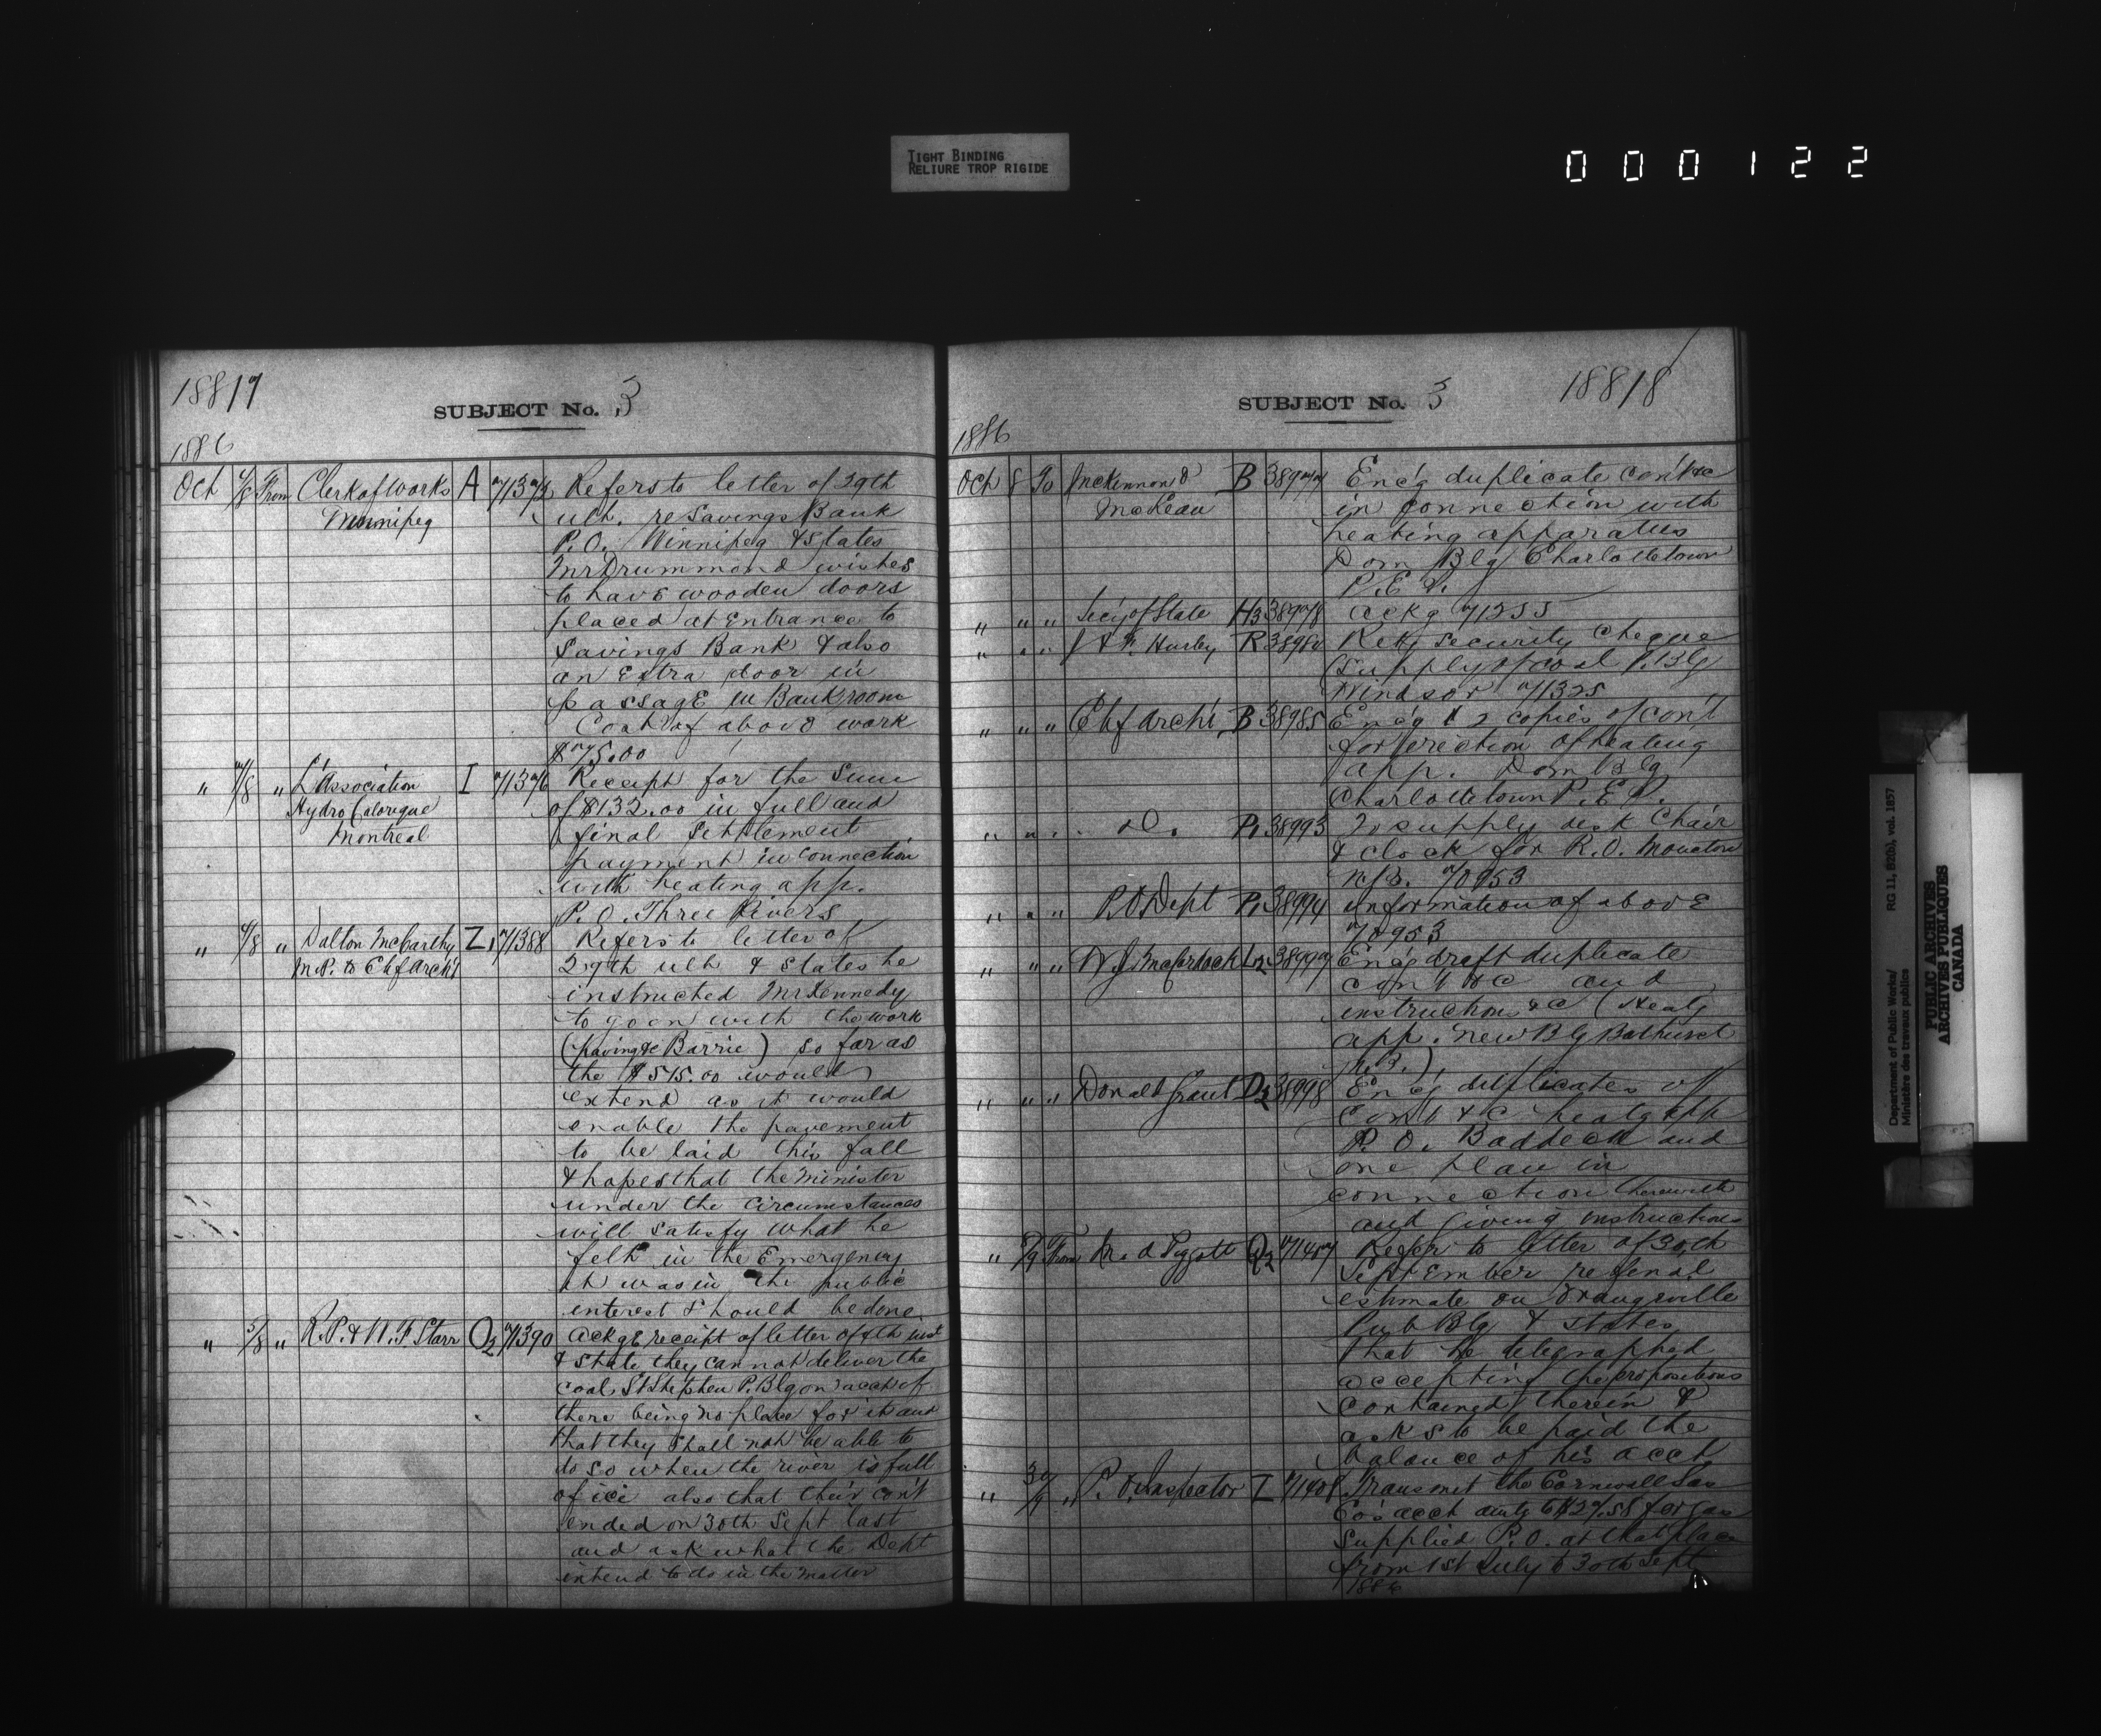 TIGHT BINDING
RELIURE TROP RIGIDE
000122
18817
SUBJECT No. 3
1886
Oct 4/8 From Clerk of Works A 71373 Refers to letter of 29th
Winnipeg ult. re Savings Bank
P.O. Winnipeg & states
Mr Drummond wishes
to have wooden doors
placed at Entrance to
Savings Bank & also
an Extra door in
passage in Bank room
Cost of above work
$75.00
" 7/8 " L'Association I 71376 Receipt for the Sum
Hydro Calorique of $132.00 in full and
Montreal final Settlement
payment in connection
with heating app.
P.O. Three Rivers
" 4/8 " Dalton McCarthy Z1 71388 Refers to letter of
M.P. to Chf Arch't 29th ult & states he
instructed Mr Kennedy
to go on with the work
(paving &c Barrie) so far as
the $515.00 would
extend as it would
enable the pavement
to be laid this fall
& hopes that the Minister
under the Circumstances
will satisfy what he
felt in the Emergency
it was in the public
interest should be done
" 5/8 " R.P. & W.F. Starr O2 71390 Ackge receipt of letter of 4th inst
& state they cannot deliver the
coal St Stephen P. Blg on acct of
there being no place for it and
that they shall not be able to
do so when the river is full
of ice also that their con't
ended on 30th Sept last
and ask what the Dept
intend to do in the matter
18818
SUBJECT No. 3
1886
Oct 8 To McKinnon & B 38977 Enc'g duplicate con't &c
MacLean in connection with
heating apparatus
Dom Blg Charlottetown
P.E.I.
" " " Sec'y of State H3 38978 ackg 71255
" " " J & F. Hurley R 38980 Retg security cheque
(Supply of coal P. Blg
Windsor 71325
" " " Chf Arch't B 38985 Enc'g 2 copies of con't
for erection of heating
app. Dom Blg
Charlottetown P.E.I.
" " " do. P1 38993 To supply desk Chair
& clock for R.O. Moncton
N.B. 70953
" " " P.O Dept P1 38994 information of above
70953
" " " W.J. McCordock L2 38997 Enc'g draft duplicate
con't &c and
instruction &c (Heatg
app. New Blg Bathurst
N.B.)
" " " Donald Grant D2 38998 Enc'g duplicates of
Con't &c heatg app
P.O. Baddeck and
one plan in
connection therewith
and giving instructions
" 8/9 From M. A Piggott Q2 71457 Refer to letter of 30th
September re final
estimate on Orangeville
Pub Blg & states
that he telegraphed
accepting the propositions
contained therein &
asks to be paid the
balance of his acct
" 30/9 " P.O. Inspector I 71408 Transmit the Cornwall Gas
Co's acct amtg to $27.58 for gas
supplied P.O. at that place
from 1st July to 30th Sept
1886
Department of Public Works/
Ministère des travaux publics
RG 11, B2(b), vol. 1857
PUBLIC ARCHIVES
ARCHIVES PUBLIQUES
CANADA